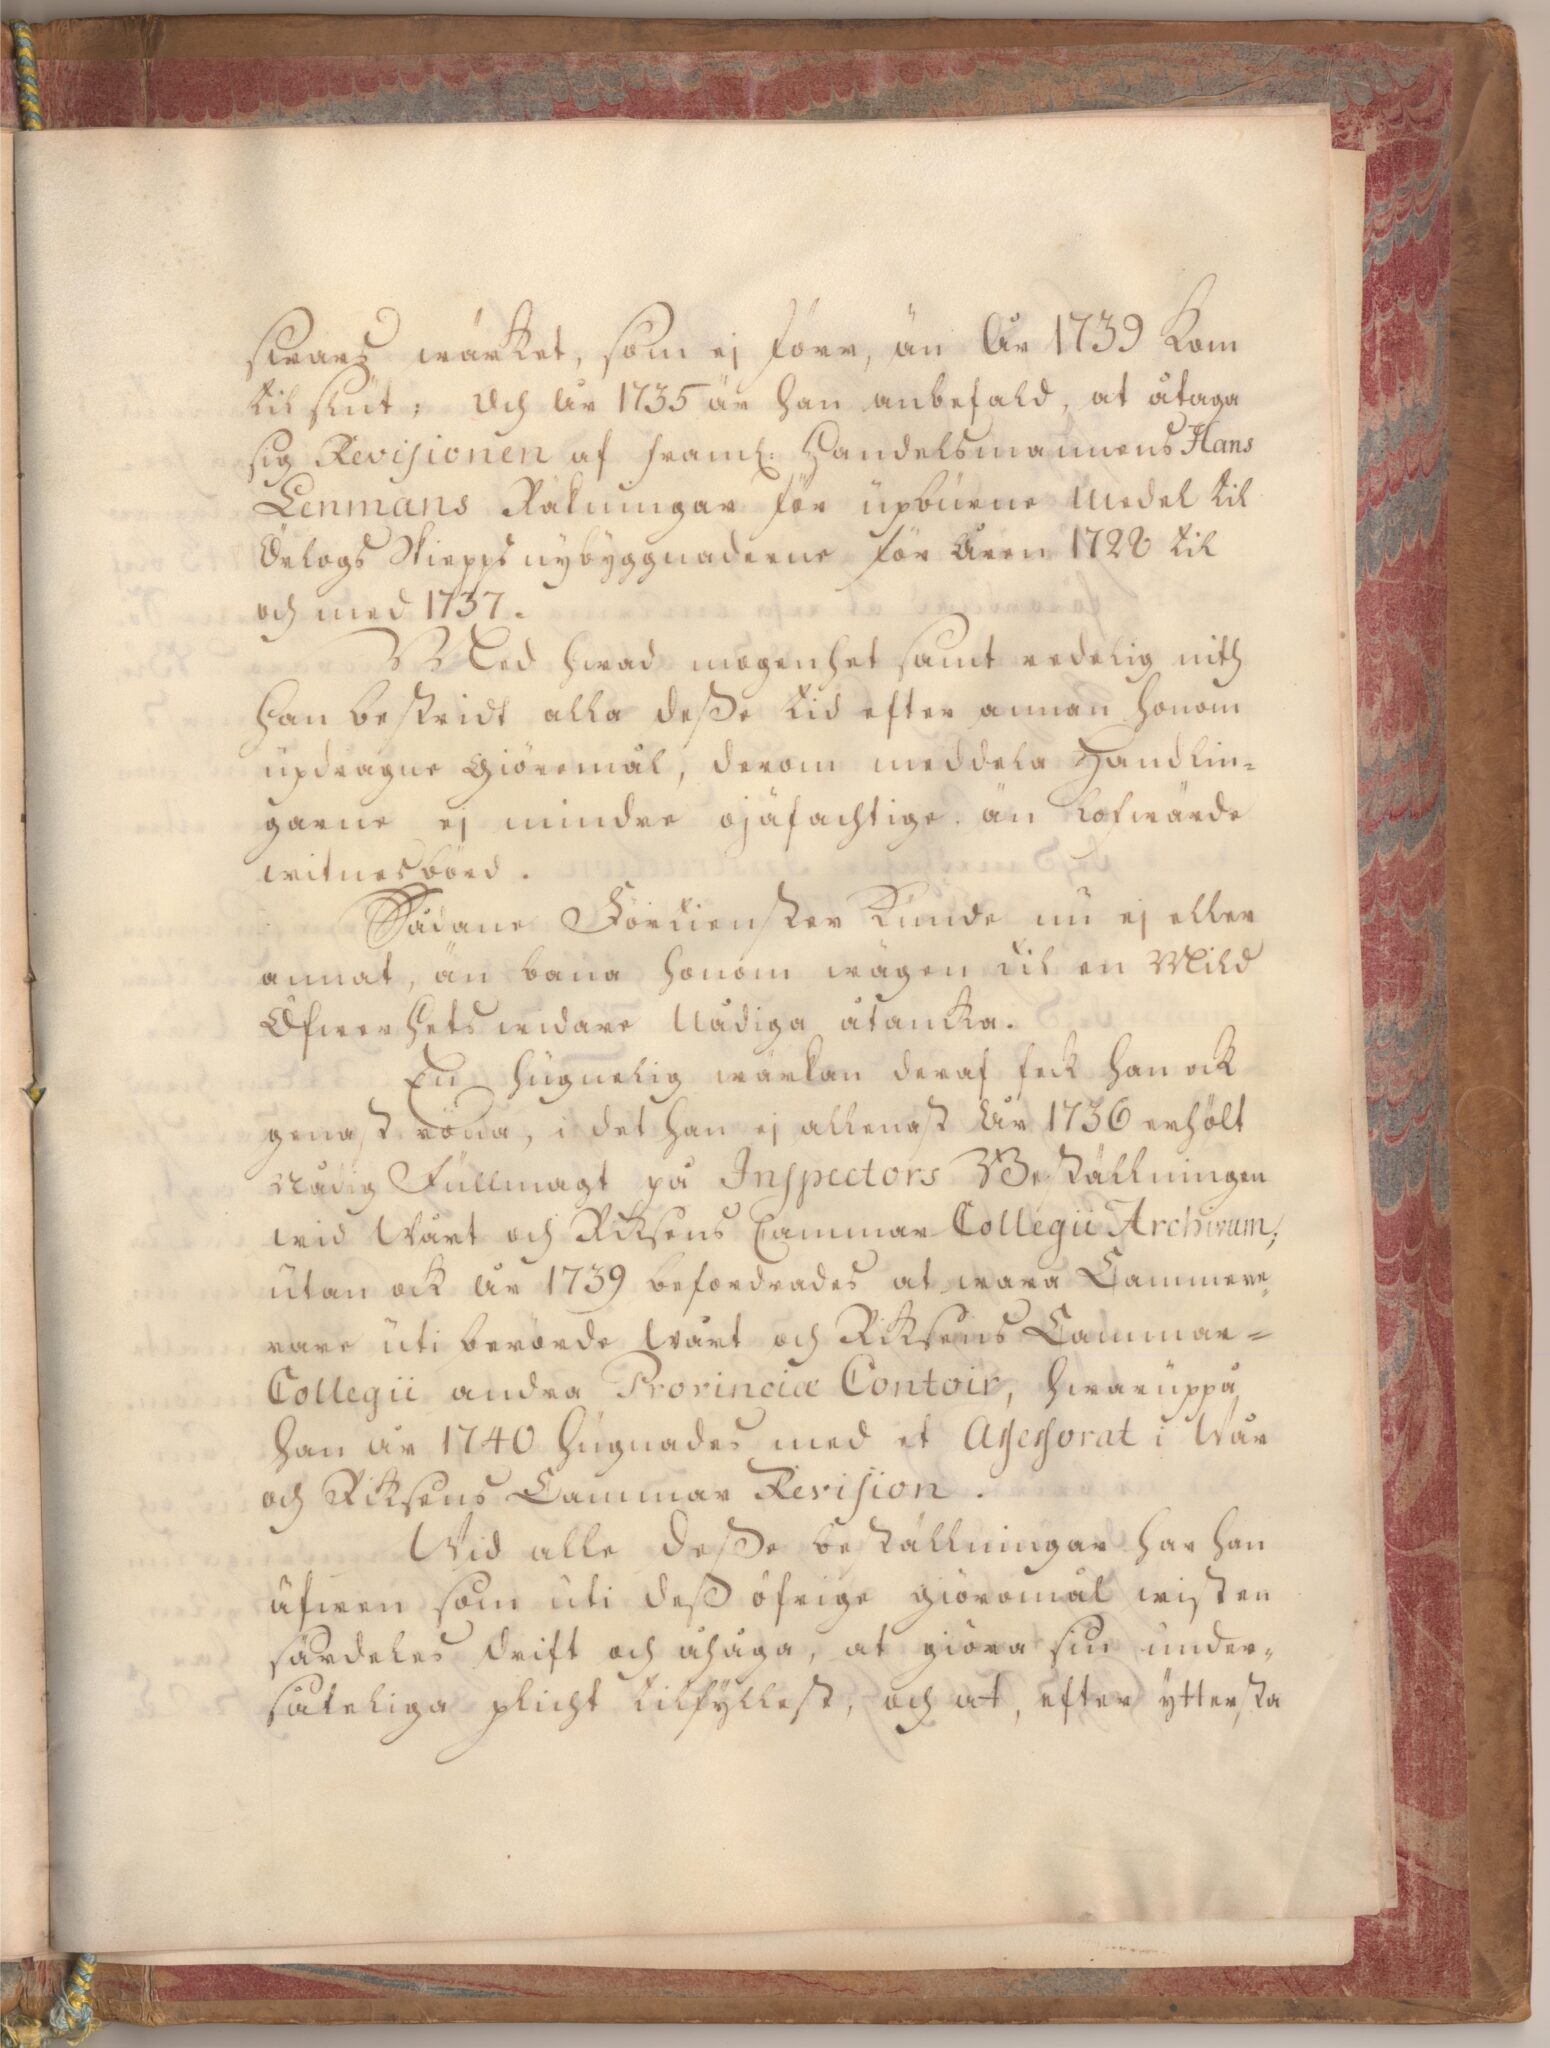 swarsz wärket, som ej förr, än År 1739 kom
til slut; Och År 1735 är han anbefald, at åtaga
sig Revisionen af framl: Handelsmannens Hans
Lenmans Räkningar för upburne Medel til
Örlogs Skiepps nybyggnaderne för Åren 1728 til
och med 1737.
Med hwad mogenhet samt redelig nith
han bestridt alla desse tid efter annan honom
updragne Giöromål, derom meddela Handlin=
garne ej mindre ojäfachtige än lofwärde
witnesbörd.
Sådane Förtienster kunde nu ej eller
annat, än bana honom wägen til en Mild
Öfwerhets widare Nådiga åtanka.
En hugnelig wärkan deraf feck han ock
genast röna, i det han ej allenast År 1736 erhölt
Nådig Fullmagt på Inspectors Beställningen
wid Wårt och Riksens Cammar Collegii Archivum,
utan ock År 1739 befordrades at wara Cammere,
rare uti berörde Wårt och Riksens Cammar=
Collegii andra Provincie Contoir, hwaruppå
han år 1740 hugnades med et Assessorat i Wår
och Riksens Cammar Revision.
Wid alle desse beställningar har han
äfwen som uti dess öfrige giöromål wisten
särdeles drift och åhåga, at giöra sin under,
såteliga plicht tilfyllest, och at, efter ytterska